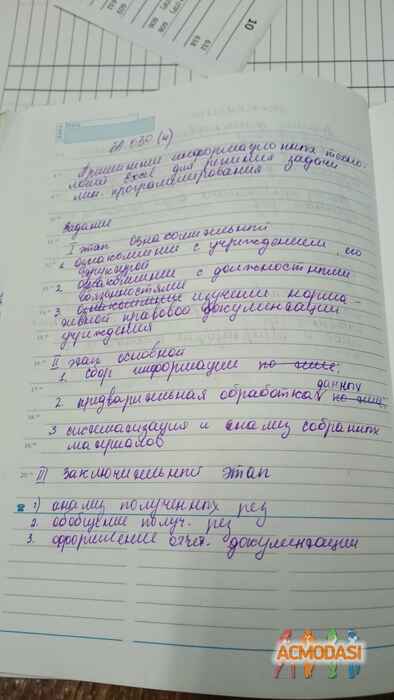 10
Применение информационных техно-
логий Excel для решения задачи
лин. программирования
Задание
I этап ознакомительной
1. ознакомление с учреждением, его
структурой
2. ознакомление с должностными
обязанностями
3. изучении норма-
тивной правовой документации
учреждения
II этап основной
1. сбор информации по теме;
данных
2. предварительная обработка по теме;
3 систематизация и анализ собранных
материалов
III Заключительный этап
1) анализ полученных рез
2. обобщение получ. рез
3. оформление отчет. документации
ACMODASI